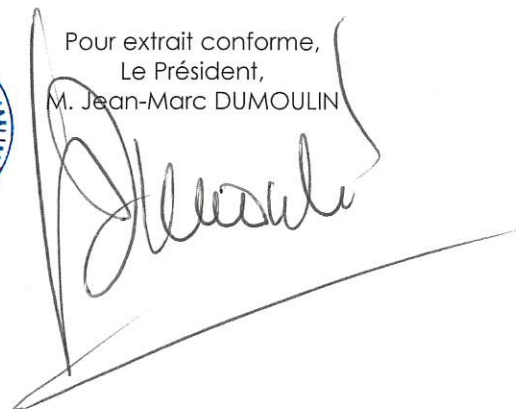 Pour extrait conforme,
Le Président,
M. Jean-Marc DUMOULIN